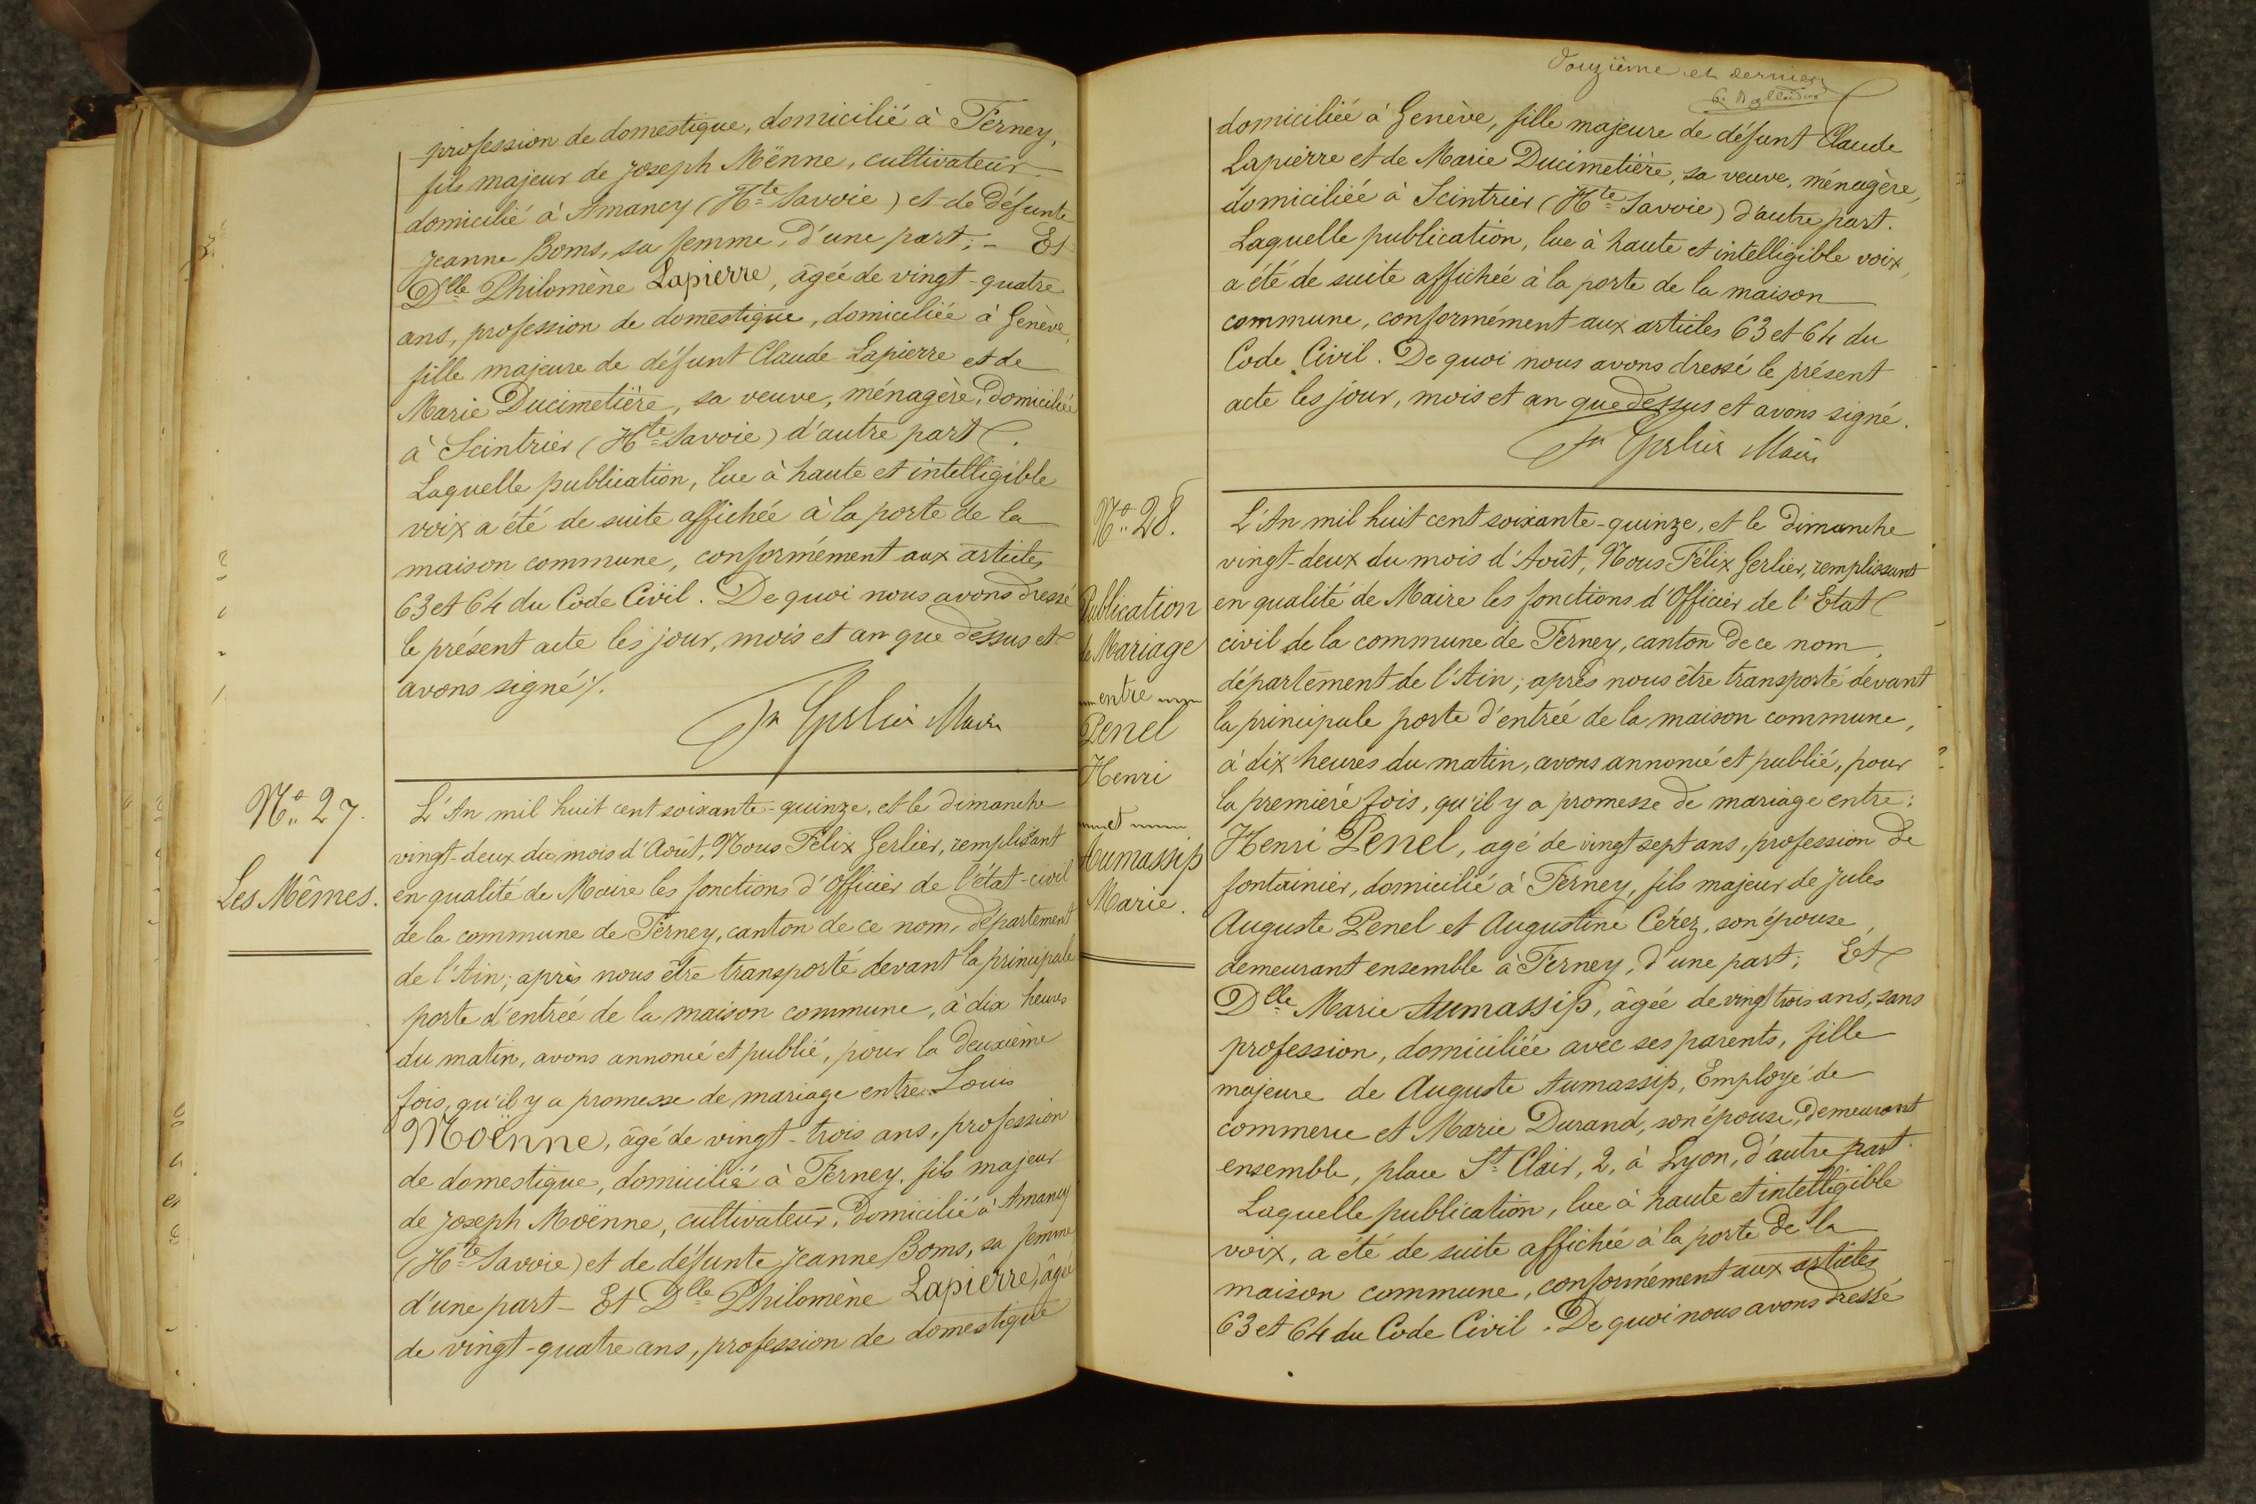 profession de domestique, domicilié à Ferney,
fils majeur de Joseph Mënne, cultivateur
domicilié à Amancy (Hte Savoie) et de défunte
Jeanne Boms, sa femme, d'une part; - Et
Dlle Philomène Lapierre, âgée de vingt-quatre
ans, profession de domestique, domiciliée à Genève,
fille majeure de défunt Claude Lapierre et de
Marie Ducimetière, sa veuve, ménagère, domiciliée
à Scintrier (Hte Savoie) d'autre part.
Laquelle publication, lue à haute et intelligible
voix a été de suite affichée à la porte de la
maison commune, conformément aux articles
63 et 64 du Code Civil. De quoi nous avons dressé
le présent acte les jour, mois et an que dessus et
avons signé./.
Gerlier Maire
No. 27.
Les Mêmes.
L'An mil huit cent soixante-quinze, et le dimanche
vingt-deux du mois d'Août, Nous Félix Gerlier, remplissant
en qualité de Maire les fonctions d'Officier de l'état-civil
de la commune de Ferney, canton de ce nom, département
de l'Ain; après nous être transporté devant la principale
porte d'entrée de la maison commune, à dix heures
du matin, avons annoncé et publié, pour la deuxième
fois, qu'il y a promesse de mariage entre Louis
Moënne, âgé de vingt-trois ans, profession
de domestique, domicilié à Ferney, fils majeur
de Joseph Moënne, cultivateur, domicilié à Amancy
(Hte Savoie) et de défunte Jeanne Boms, sa femme
d'une part - Et Dlle Philomène Lapierre, âgée
de vingt-quatre ans, profession de domestique
Douzième et dernier
domiciliée à Genève, fille majeure de défunt Claude
Lapierre et de Marie Ducimetière, sa veuve, ménagère,
domiciliée à Scintrier (Hte Savoie) d'autre part.
Laquelle publication, lue à haute et intelligible voix,
a été de suite affichée à la porte de la maison
commune, conformément aux articles 63 et 64 du
Code Civil. De quoi nous avons dressé le présent
acte les jour, mois et an que dessus et avons signé.
Gerlier Maire
No. 28.
Publication
de Mariage
entre
Penel
Henri
et
Aumassip
Marie.
L'An mil huit cent soixante-quinze, et le dimanche
vingt-deux du mois d'Août, Nous Félix Gerlier, remplissant
en qualité de Maire les fonctions d'Officier de l'Etat
civil de la commune de Ferney, canton de ce nom,
département de l'Ain; après nous être transporté devant
la principale porte d'entrée de la maison commune,
à dix heures du matin, avons annoncé et publié, pour
la première fois, qu'il y a promesse de mariage entre:
Henri Penel, agé de vingt sept ans, profession de
fontainier, domicilié à Ferney, fils majeur de Jules
Auguste Penel et Augustine Cérez, son épouse,
demeurant ensemble à Ferney, d'une part; Et
Dlle Marie Aumassip, âgée de vingt trois ans, sans
profession, domiciliée avec ses parents, fille
majeure de Auguste Aumassip, Employé de
commerce et Marie Durand, son épouse, demeurant
ensemble, place St Clair, 2, à Lyon, d'autre part.
Laquelle publication, lue à haute et intelligible
voix, a été de suite affichée à la porte de la
maison commune, conformément aux articles
63 et 64 du Code Civil. De quoi nous avons dressé